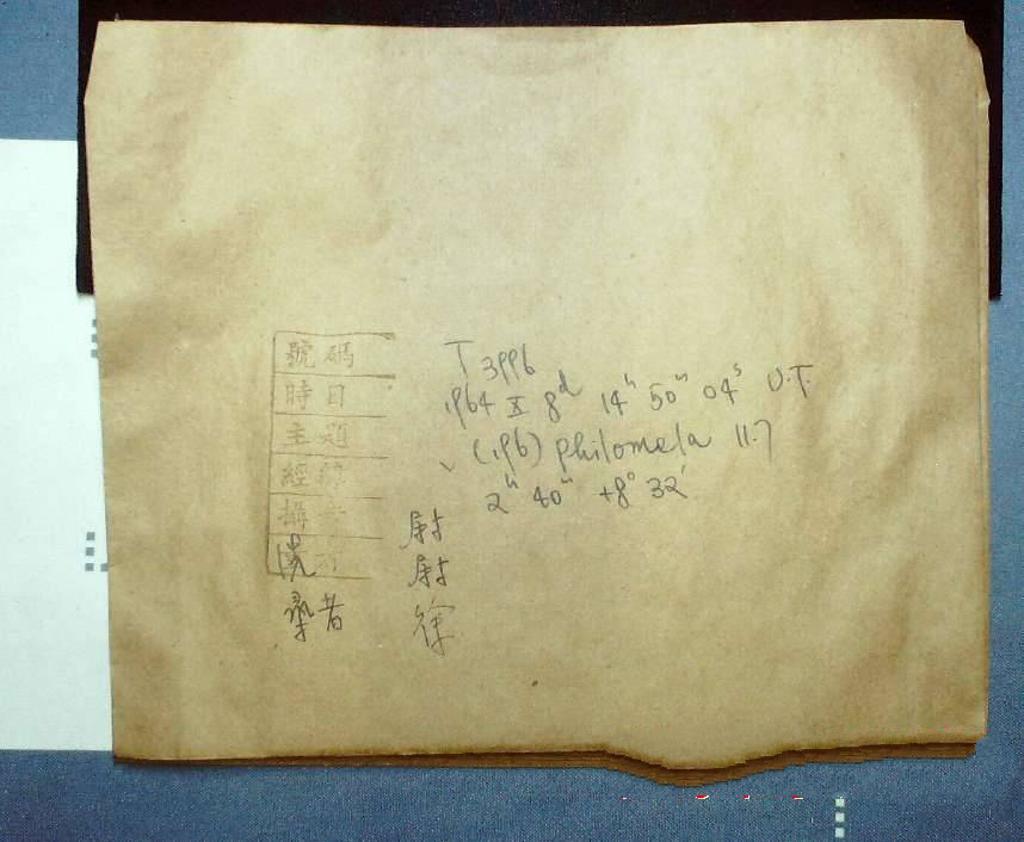 號碼 T 3996
時日 1964 X 8d 14h 50m 04s U.T.
主題 (196) philomela 11.7
經緯 2h 40m +8° 32′
攝者 尉
洗 尉
者 徐